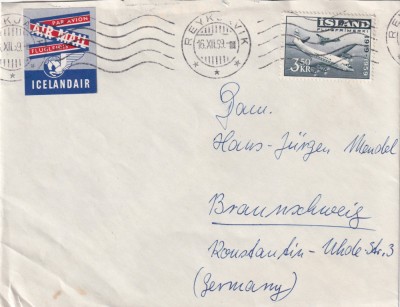 PAR AVION
AIR MAIL
FLUGLEIÐIS
ICELANDAIR
REYKJAVIK
16.XII.59.
ÍSLAND
1919 1959
3.50
KR
Dam.
Hans-Jürgen Mendel
Braunschweig
Konstantin-Uhde-Str. 3
(Germany)